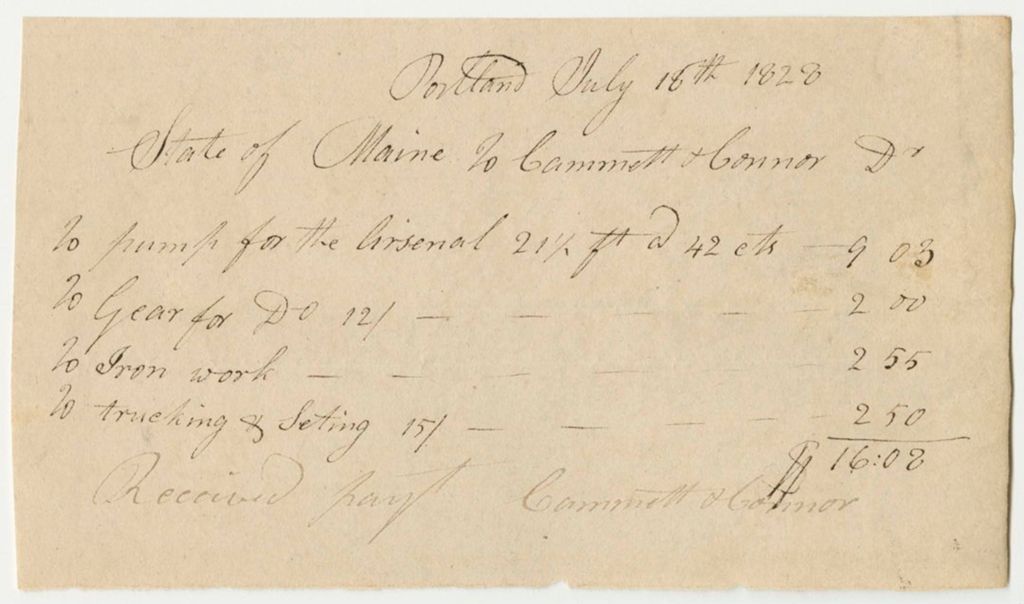 Portland July 18th 1828
State of Maine To Cammett & Connor Dr
To pump for the Arsenal 21½ ft @ 42 cts — 9 03
To Gear for Do 12/ — — — — — 2 00
To Iron work — — — — — 2 55
To trucking & Seting 15/ — — — — 2 50
$ 16:08
Received payt Cammett & Connor